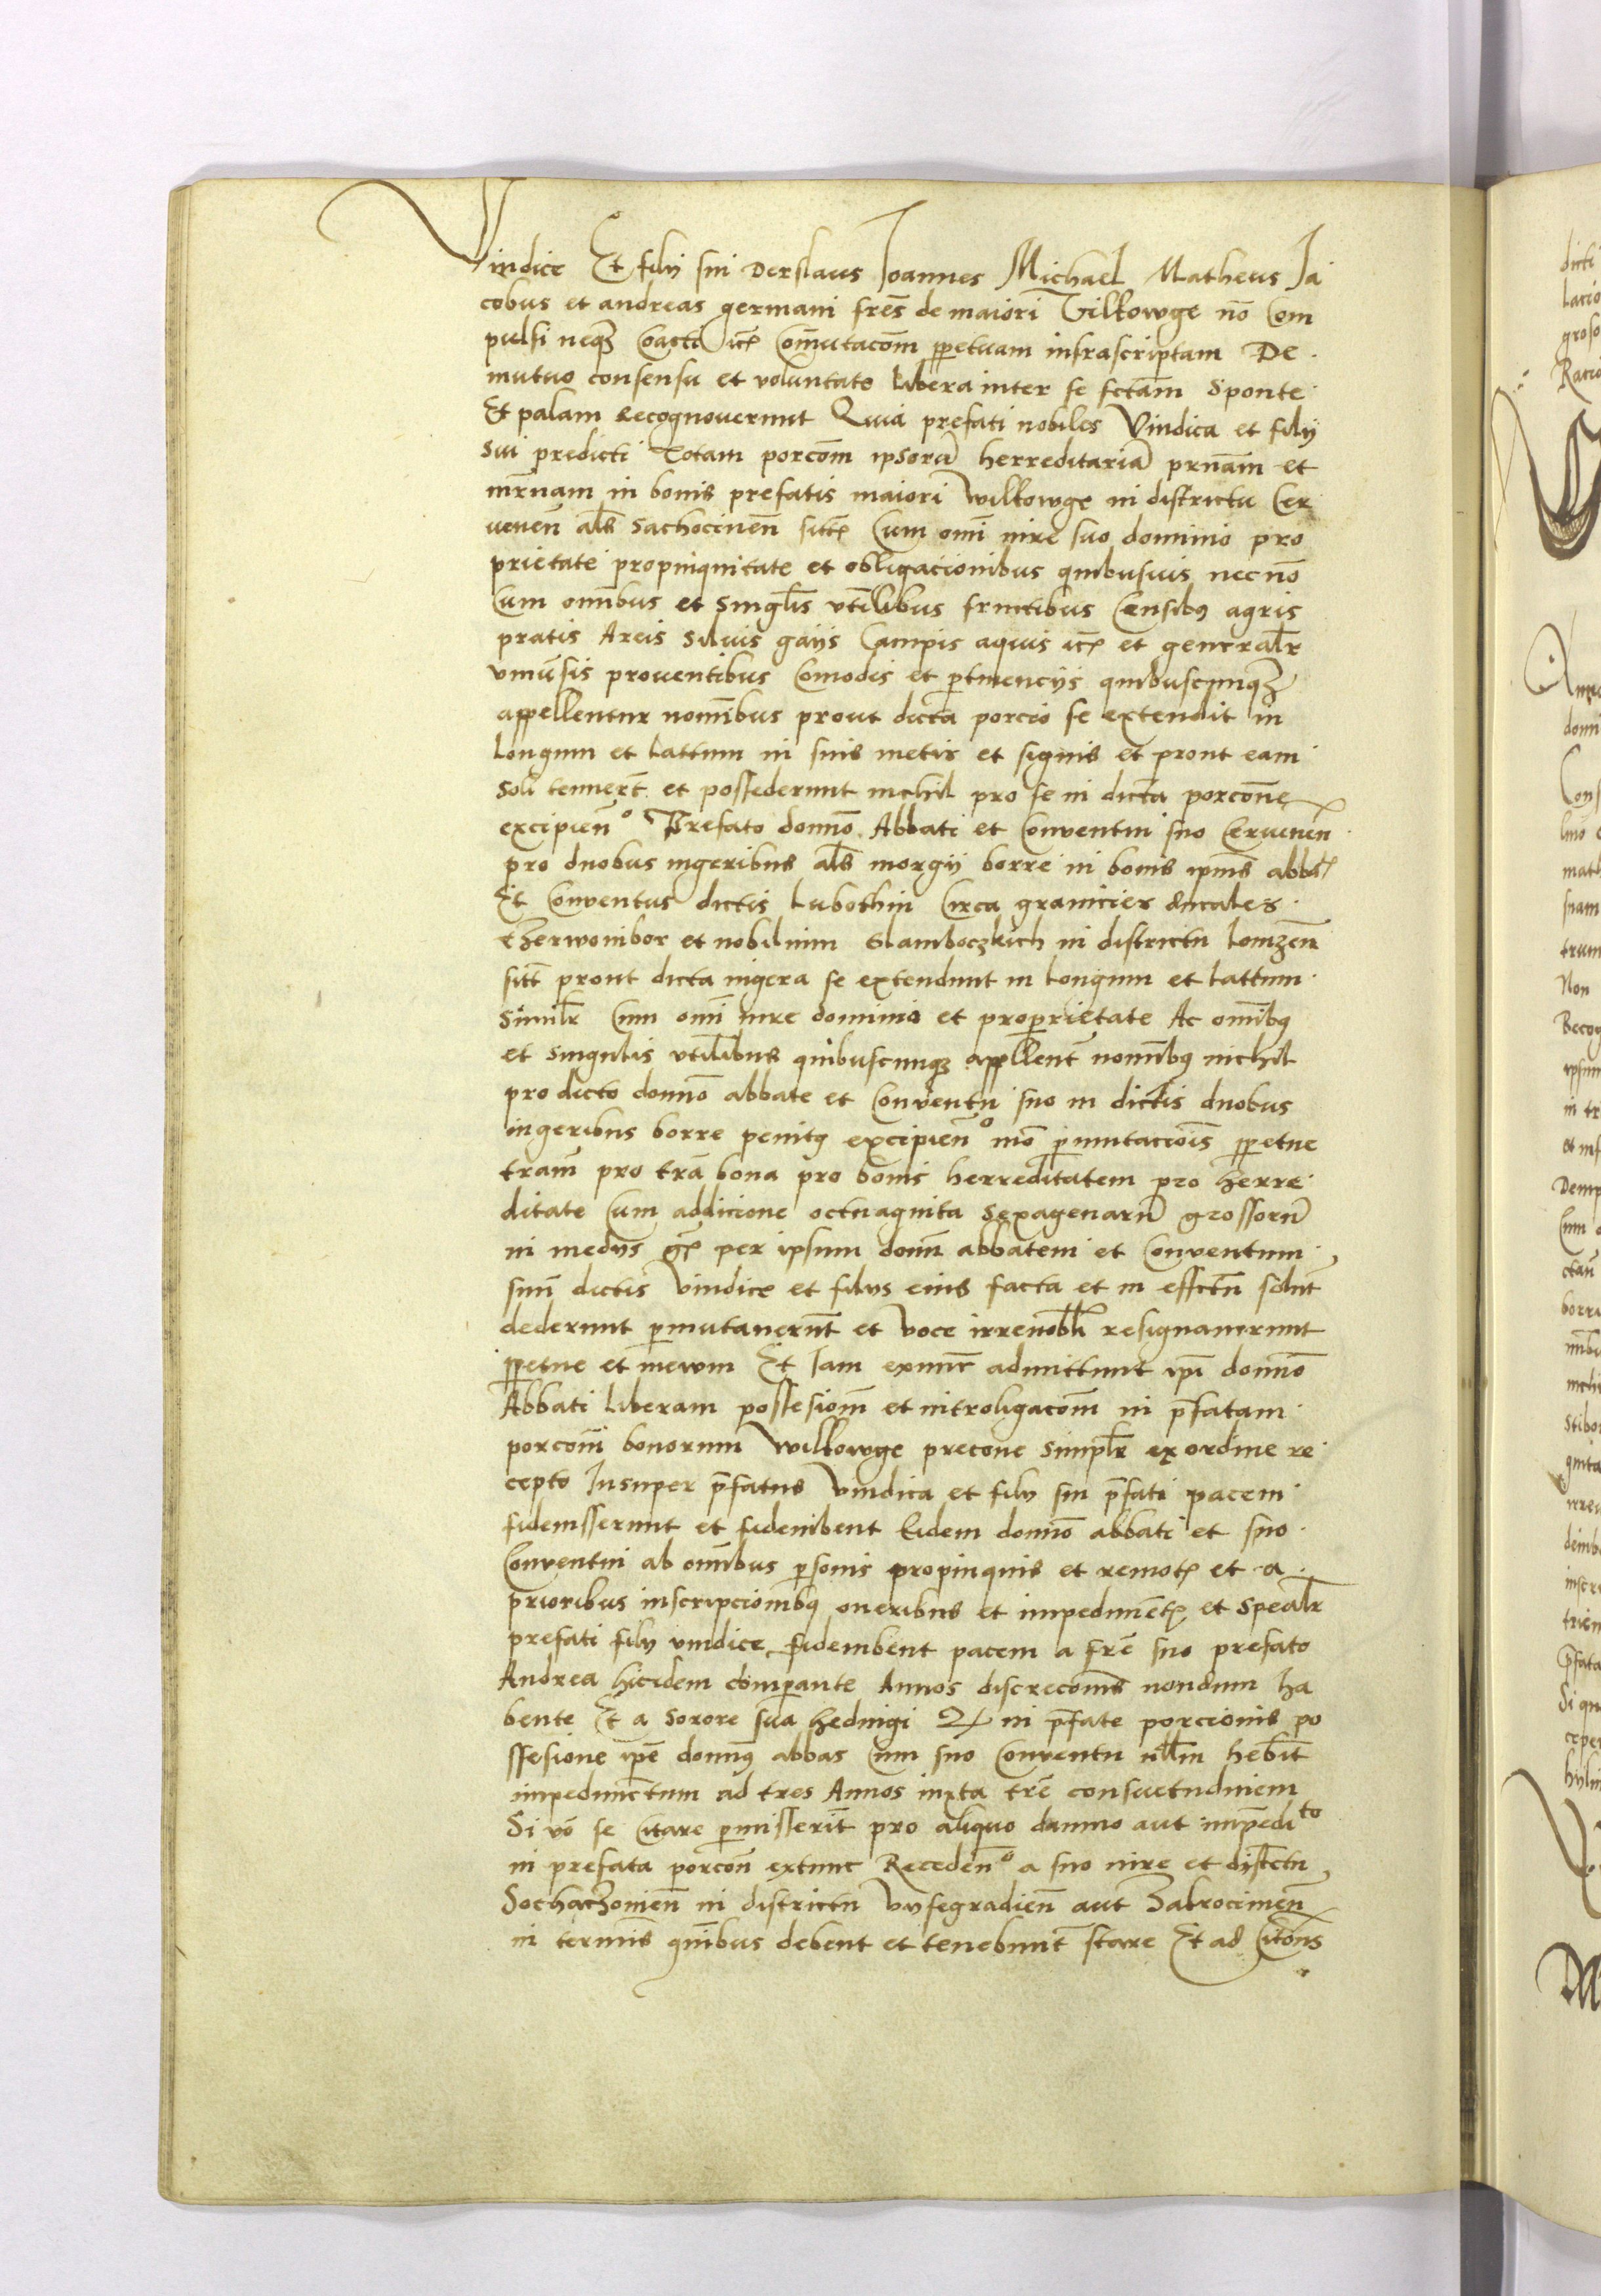 Vindice Et filij sui Derslaus Joannes Michael Matheus Ja
cobus et andreas germani frēs de maiori Vilkowge nō Com
pulsi neqȝ Coacti etc Comutacōm ppetuam infrascriptam De
mutuo consensu et voluntate libera inter se fctam sponte
Et palam Recognoverunt Quia prefati nobiles Vindica et filij
sui predicti Totam porcōm ipsorū herreditariā prnām et
mr̄nam in bonis prefatis maiori Wilkowge in districtu Cer
uenen̄ als̄ Sachocinen̄ sitt Cum omī iure suo dominio pro
prietate propinquitate et obligacionibus quibusuis nec nō
Cum omībus et singlis vtilibus fructibus Censibꝰ agris
pratis Areis Siluis gaijs Campis aquis etc et generalr̄
vniu̅sis prouentibus Comodis et ptinencijs quibuscunqȝ
appellentur nomībus prout dicta porcio se extendit in
Longum et Lattum in suis metis et signis et prout eam
soli tenuert̄ et possederunt nichil pro se in dicta porcōne
excipien̄o Prefato domno Abbati et Conventui suo Ceruenen̄
pro duobus iugeribus als̄ morgij borre in bonis ipius abbat
Et Conventus dictis Lubothin Circa granicies ducales
Czerwonibor et nobilium Glamboczkich in districtu Lomzen̄
sitt prout dicta iugera se extendunt in Longum et Lattum
Similr̄ Cum omī iure dominio et proprietate Ac omībꝰ
et singulis vtilibus quibuscunqȝ appllent̄ nomībꝰ nichil
pro dicto domno abbate et Conventu suo in dictis duobus
iugeribus borre penitꝰ excipien̄o mō pmutaciois̄ ppetue
tram̄ pro tra̅ bona pro bonis herreditatem pro herre
ditate Cum addicione octuaginta Sexagenarū grossorū
in medijs gr per ipsum domn̄ abbatem et Conventum
suu̅ dictis Vindice et filijs eius facta et in effctu̅ solut̄
dederunt pmutauerunt et voce irreuobli resignauerunt
ppetue et in ewm Et Jam exnunc admittunt ipi domno
Abbati liberam possesiom̄ et introligacōm in pfatam
porcom̄ bonorum Wilkowge precone simplr̄ ex ordine re
cepto Insuper pfatus Vindica et filij sui pfati pacem
fideiusserunt et fideiubent Eidem domno abbati et suo
Conventui ab omībus psonis propinquis et remot et a
prioribus inscripcionibꝰ oneribus et impedimēt et spealr̄
prefati filij vindice fideiubent pacem a fre̅ suo prefato
Andrea hicidem compante Annos discrecois̄ nondum ha
bente Et a Sorore sua hedvigi Qr in pfate porcionis po
ssesione ipē domnꝰ abbas Cum suo Conventu nllm hebit
impedimētum ad tres Annos iuxta tre̅ consuetudinem
Si vō se Citare pmisserit̄ pro aliquo damno aut impedito
in prefata porcōn extunc Receden̄o a suo iure et distctu
Sochaczouien̄ in districtu Vysegradien̄ aut Zakrocimen̄
in termīs quibus debent et tenebunt̄ stare Et ad Citōns